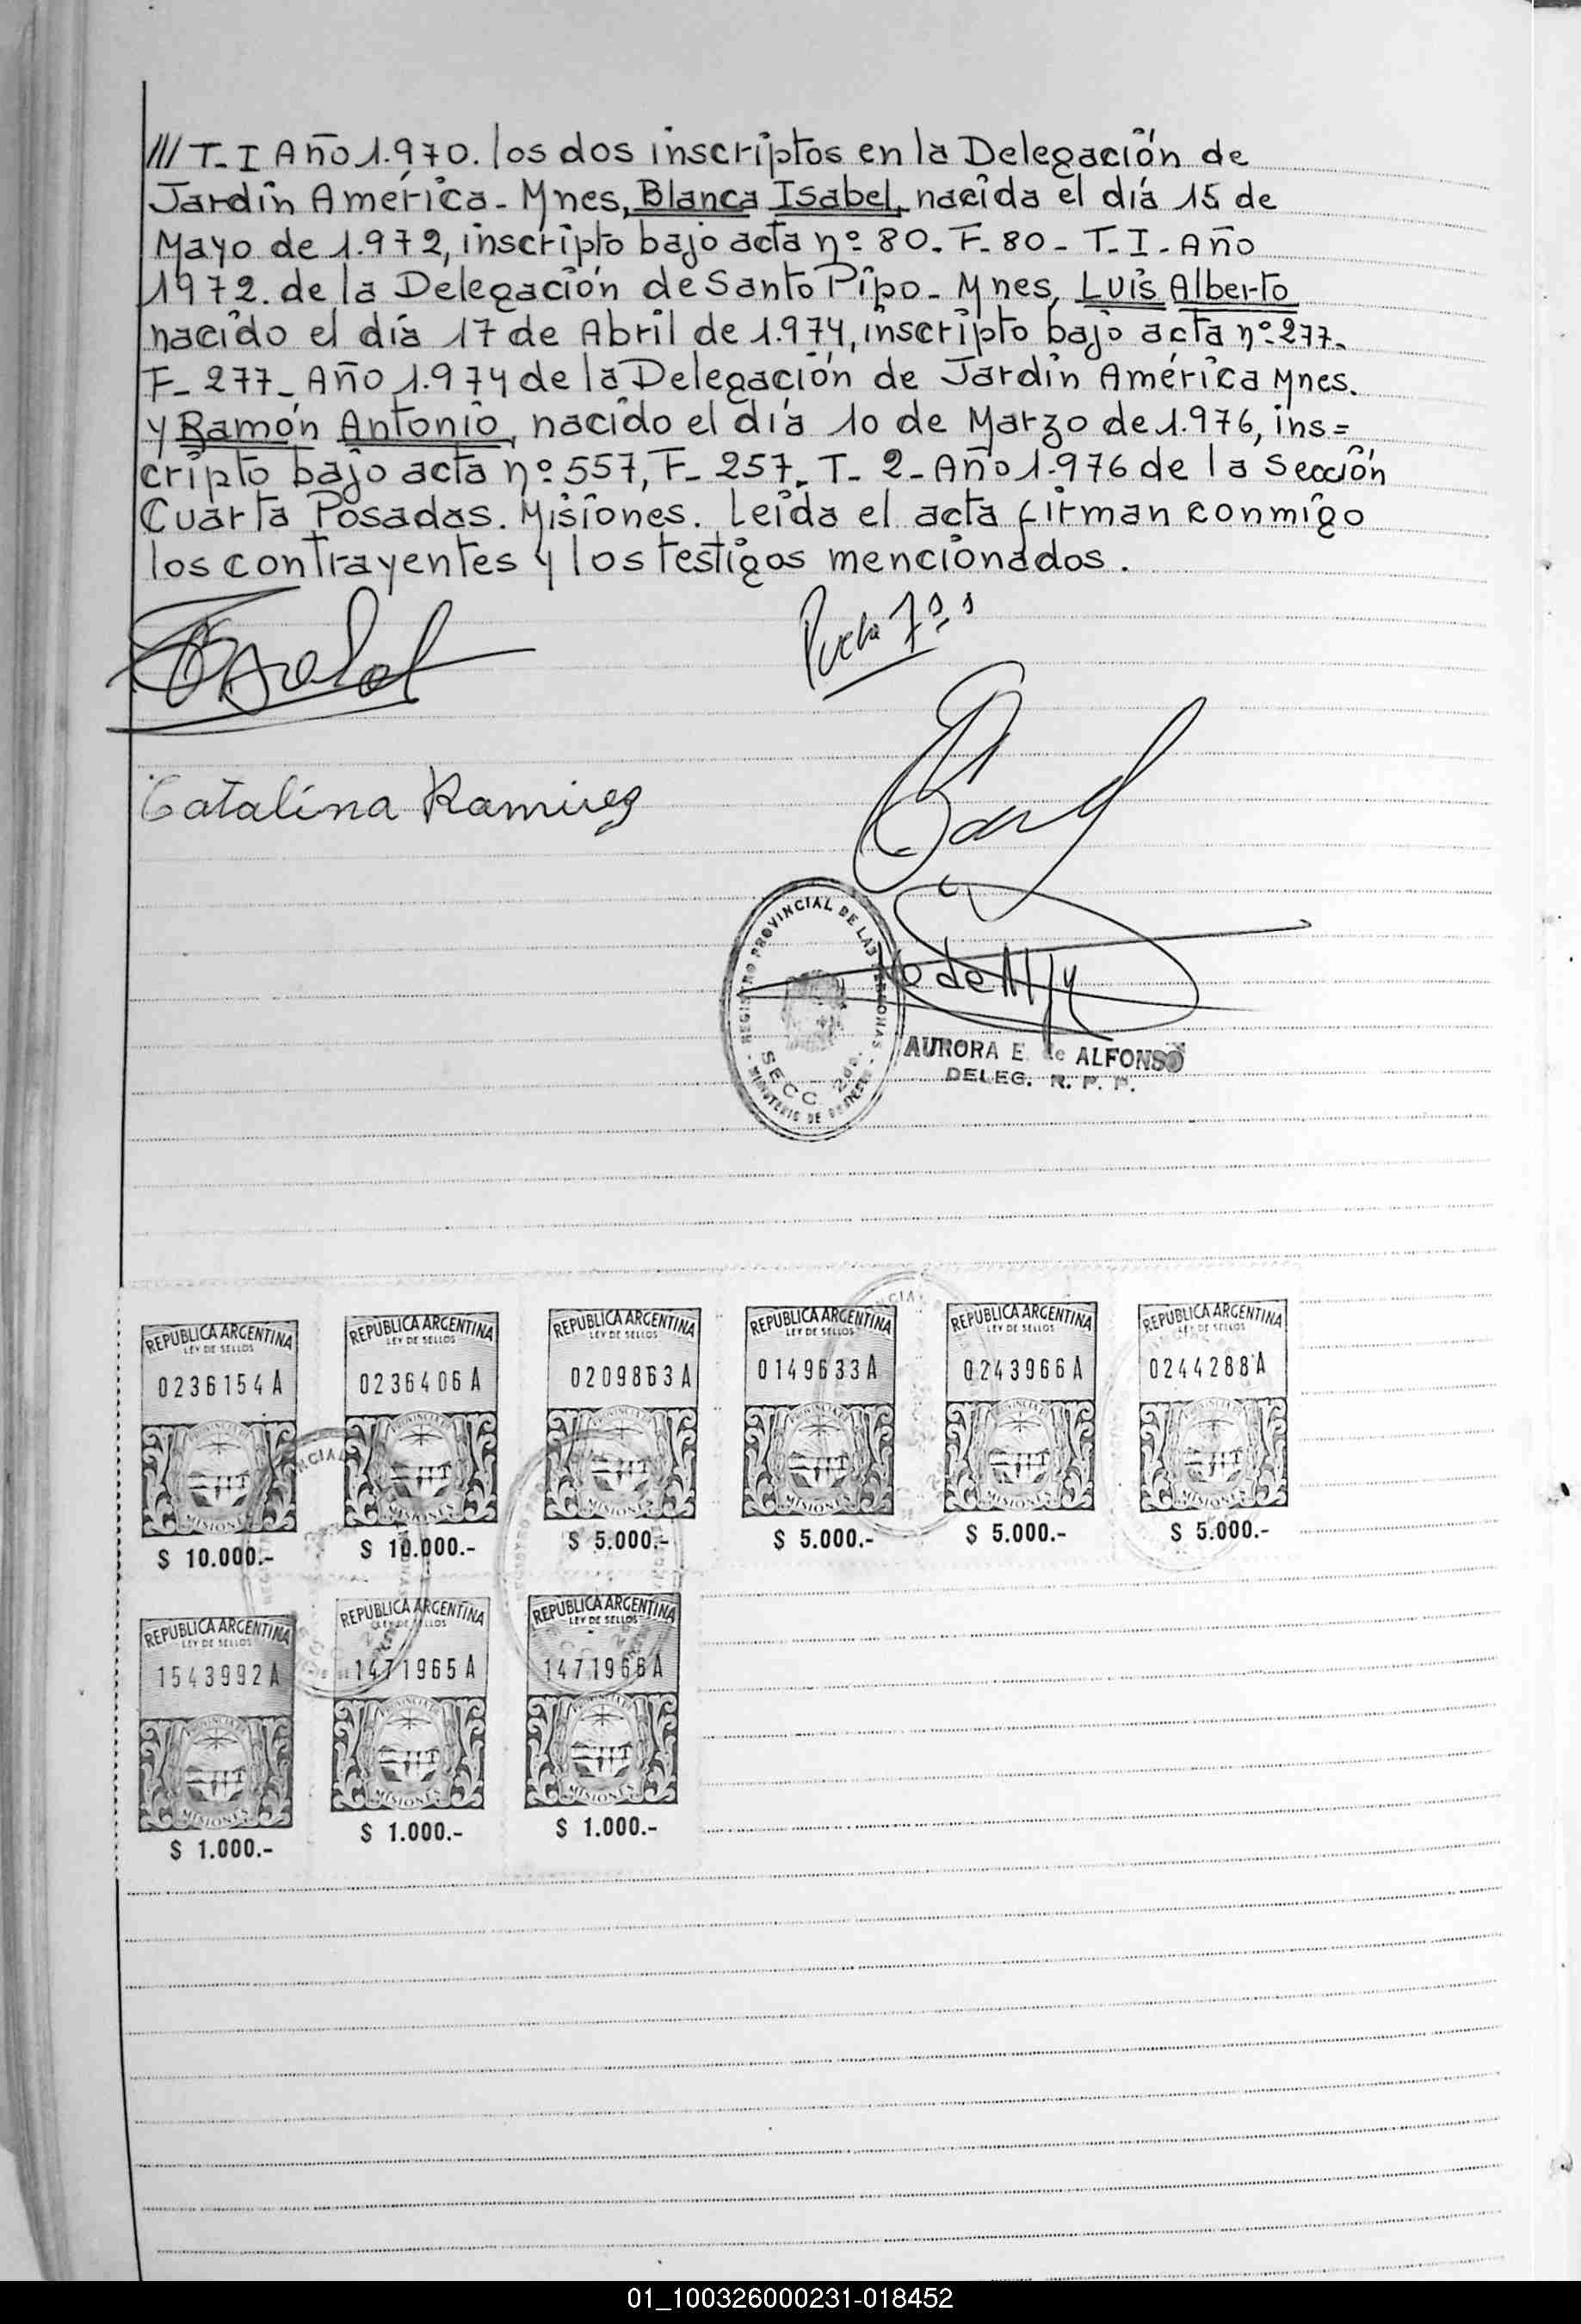 /// T-I Año 1.970. los dos inscriptos en la Delegación de
Jardín América - Mnes, Blanca Isabel, nacida el día 15 de
Mayo de 1.972, inscripto bajo acta nº 80. F- 80 - T. I - Año
1972. de la Delegación de Santo Pipo - Mnes, Luis Alberto
nacido el día 17 de Abril de 1.974, inscripto bajo acta nº 277.
F- 277- Año 1.974 de la Delegación de Jardín América Mnes.
y Ramón Antonio, nacido el día 10 de Marzo de 1.976, ins=
cripto bajo acta nº 557, F- 257. T- 2- Año 1.976 de la Sección
Cuarta Posadas. Misiones. Leída el acta firman conmigo
los contrayentes y los testigos mencionados.
Catalina Ramirez
REGISTRO PROVINCIAL DE LAS PERSONAS
SECC. 2da.
MINISTERIO DE
AURORA E. de ALFONSO
DELEG. R. P. P.
REPUBLICA ARGENTINA REPUBLICA ARGENTINA REPUBLICA ARGENTINA REPUBLICA ARGENTINA REPUBLICA ARGENTINA REPUBLICA ARGENTINA
LEY DE SELLOS LEY DE SELLOS LEY DE SELLOS LEY DE SELLOS LEY DE SELLOS LEY DE SELLOS
0236154 A 0236406 A 0209863 A 0149633 A 0243966 A 0244288 A
MISIONES MISIONES MISIONES MISIONES MISIONES MISIONES
$ 10.000.- $ 10.000.- $ 5.000.- $ 5.000.- $ 5.000.- $ 5.000.-
REPUBLICA ARGENTINA REPUBLICA ARGENTINA REPUBLICA ARGENTINA
LEY DE SELLOS LEY DE SELLOS LEY DE SELLOS
1543992 A 1471965 A 1471966 A
MISIONES MISIONES MISIONES
$ 1.000.- $ 1.000.- $ 1.000.-
01_100326000231-018452